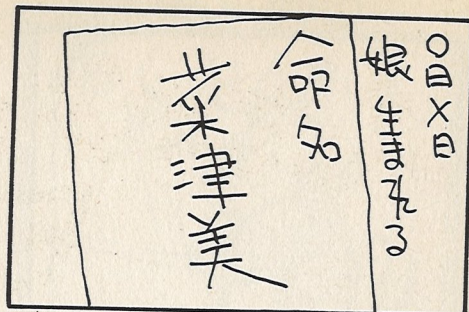 〇月×日
娘生まれる
命名
菜津美